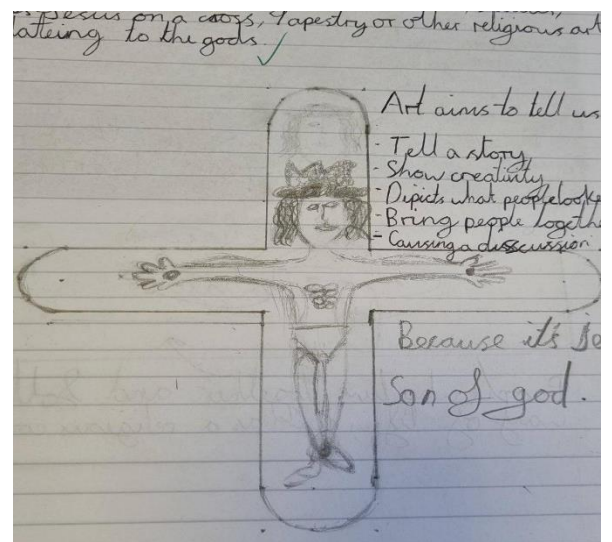 Jesus on a cross, Tapestry or other religious art
to the gods.
Art aims to tell us
- Tell a story
- Show creativity
- Dipicts what people looke
- Bring people togethe
- Causing a discussion.
Because it's Je
Son of god.